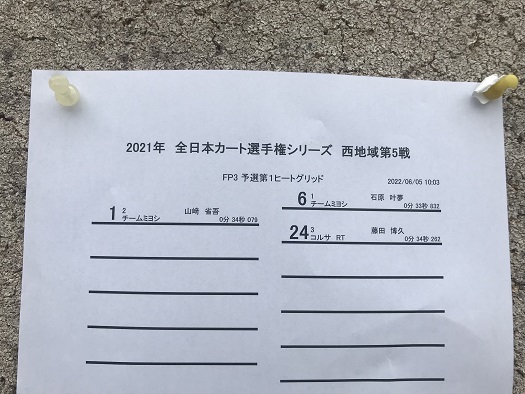 2021年 全日本カート選手権シリーズ 西地域第5戦
FP3 予選第1ヒートグリッド
2022/06/05 10:03
6 1 石原 叶夢
チームミヨシ 0分 33秒 832
1 2 山﨑 省吾
チームミヨシ 0分 34秒 079
24 3 藤田 博久
コルサ RT 0分 34秒 262